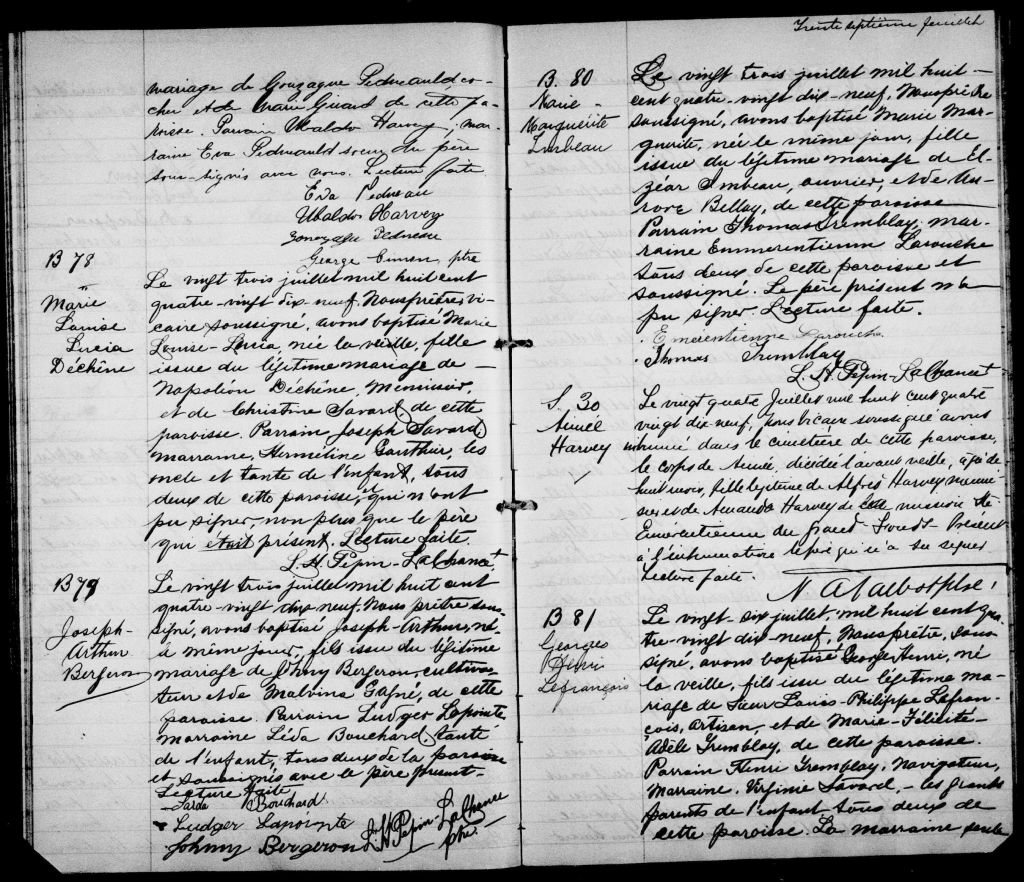 mariage de Gonzague Pednauld, co-
cher et de Marie Girard de cette pa-
roisse. Parrain Ubaldo Harvey, mar-
raine Eva Pednauld soeur du père
sous-signés avec nous. Lecture faite.
Eva Pedneau
Ubaldo Harvey
Gonzague Pedneau
George Cimon, ptre
B 78
Marie
Louise
Lucia
Dechêne
Le vingt trois juillet mil huit cent
quatre-vingt dix-neuf, Nous prêtre vi-
caire soussigné, avons baptisé Marie
Louise-Lucia née la veille, fille
issue du légitime mariage de
Napoléon Déchêne, Menuisier,
et de Christine Savard, de cette
paroisse. Parrain Joseph Savard,
marraine, Herméline Gauthier, les
oncle et tante de l'enfant, tous
deux de cette paroisse, et qui n'ont
pu signer, non plus que le père
qui était présent. Lecture faite.
L. H. Pépin-Lachance, ptre
B 79
Joseph-
Arthur
Bergeron
Le vingt trois juillet mil huit cent
quatre-vingt dix-neuf, Nous prêtre sous-
signé, avons baptisé Joseph-Arthur, né
à même jour, fils issu du légitime
mariage de Johny Bergeron, cultiva-
teur et de Malvina Gagné, de cette
paroisse. Parrain Ludger Lapointe,
Marraine Léda Bouchard, tante
de l'enfant, tous deux de la paroisse
et soussignés avec le père présent-
Lecture faite
Bouchard
Ludger Lapointe
Johnny Bergeron L. H. Pépin Lachance
ptre.
Trente septième feuillet
B. 80
Marie-
Marguerite
Imbeau
Le vingt trois juillet mil huit-
cent quatre-vingt dix-neuf, Nous prêtre
soussigné, avons baptisé Marie Mar-
guerite, née le même jour, fille
issue du légitime mariage de El-
zéar Imbeau, ouvrier, et de Au-
rore Bellay, de cette paroisse
Parrain Thomas Tremblay, mar-
raine Emmerentienne Larouche
tous deux de cette paroisse et
soussigné. Le père présent n'a
pu signer. Lecture faite.
Emerentienne Larouche
Thomas Tremblay
L. H. Pépin-Lachance ptre
S. 30
Aimée
Harvey
Le vingt quatre Juillet mil huit cent quatre
vingt dix neuf, nous vicaire soussigné avons
inhumé dans le cimetière de cette paroisse,
le corps de Aimée, décédée l'avant veille, âgée de
huit mois, fille légitime de Alfred Harvey menui-
sier et de Amanda Harvey de cette mission de
du Grand Fonds. Présent
à l'inhumation le père qui n'a su signer
Lecture faite.
N. A. Talbot Ptre,
B 81
Georges
Henri
Lefrançois
Le vingt-six juillet, mil huit cent qua-
tre-vingt dix-neuf, Nous prêtre, sous-
signé, avons baptisé George Henri, né
la veille, fils issu du légitime ma-
riage de Sieur Louis-Philippe Lefran-
çois, Artisan, et de Marie-Félicité-
Adèle Tremblay, de cette paroisse.
Parrain Henri Tremblay, Navigateur,
Marraine. Virginie Savard,- les grands
parents de l'enfant tous deux de
cette paroisse. La marraine seule